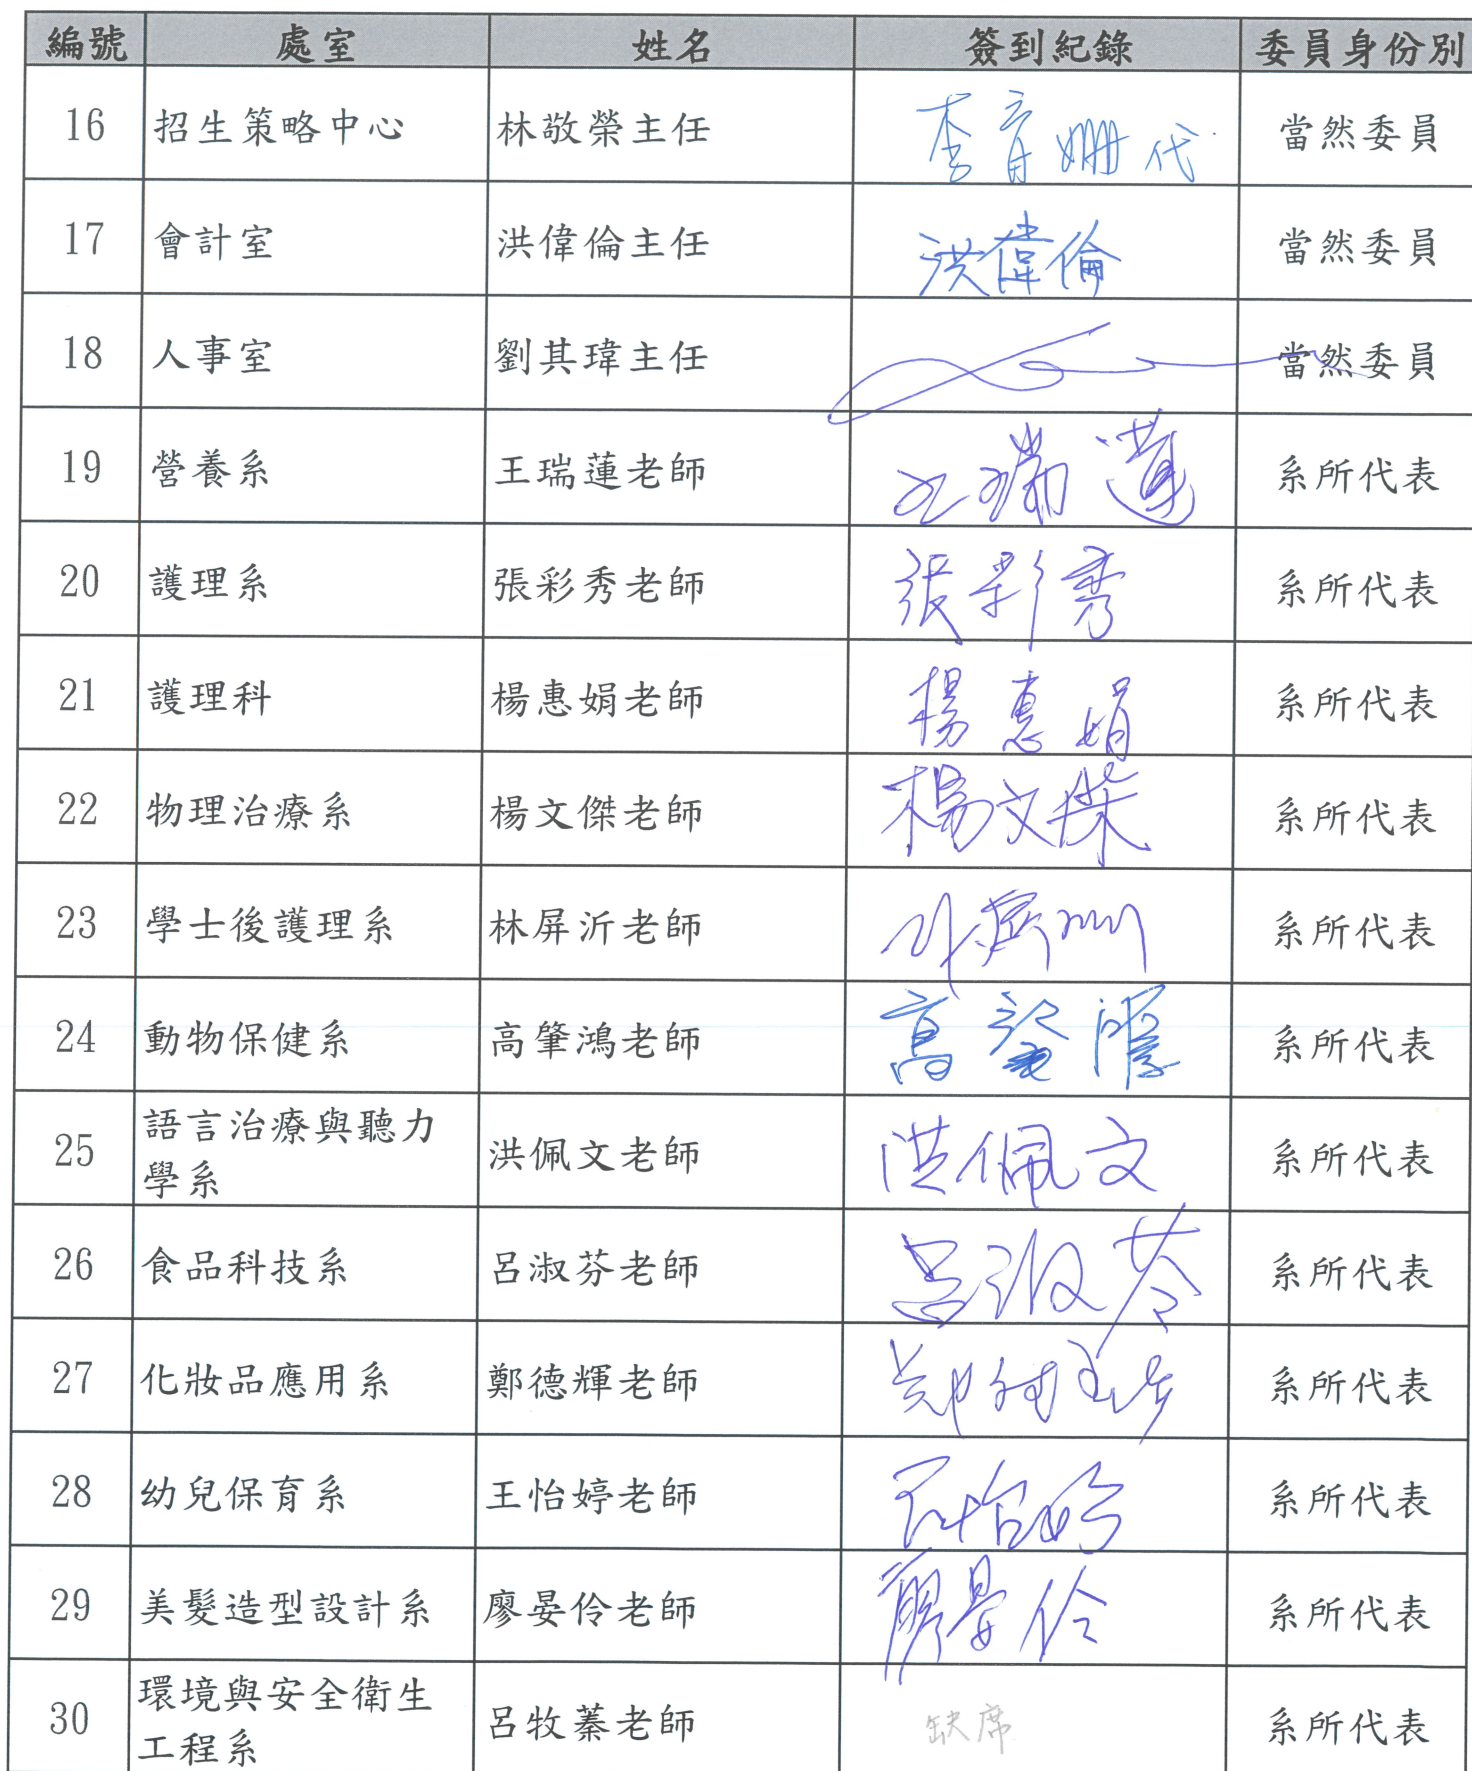 編號 處室 姓名 簽到紀錄 委員身份別
16 招生策略中心 林敬榮主任 李育姍代 當然委員
17 會計室 洪偉倫主任 洪偉倫 當然委員
18 人事室 劉其瑋主任 當然委員
19 營養系 王瑞蓮老師 王瑞蓮 系所代表
20 護理系 張彩秀老師 張彩秀 系所代表
21 護理科 楊惠娟老師 楊惠娟 系所代表
22 物理治療系 楊文傑老師 楊文傑 系所代表
23 學士後護理系 林屏沂老師 系所代表
24 動物保健系 高肇鴻老師 高肇鴻 系所代表
25 語言治療與聽力 洪佩文老師 洪佩文 系所代表
學系
26 食品科技系 呂淑芬老師 呂淑芬 系所代表
27 化妝品應用系 鄭德輝老師 系所代表
28 幼兒保育系 王怡婷老師 王怡婷 系所代表
29 美髮造型設計系 廖晏伶老師 廖晏伶 系所代表
30 環境與安全衛生 呂牧蓁老師 缺席 系所代表
工程系